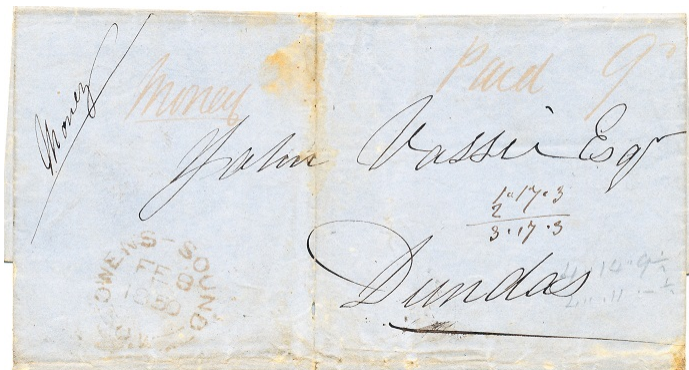 Money
Money
Paid 9d
John Vassie Esqr
1.17.3
2
3.17.3
Dundas
OWENS-SOUND
FE 8